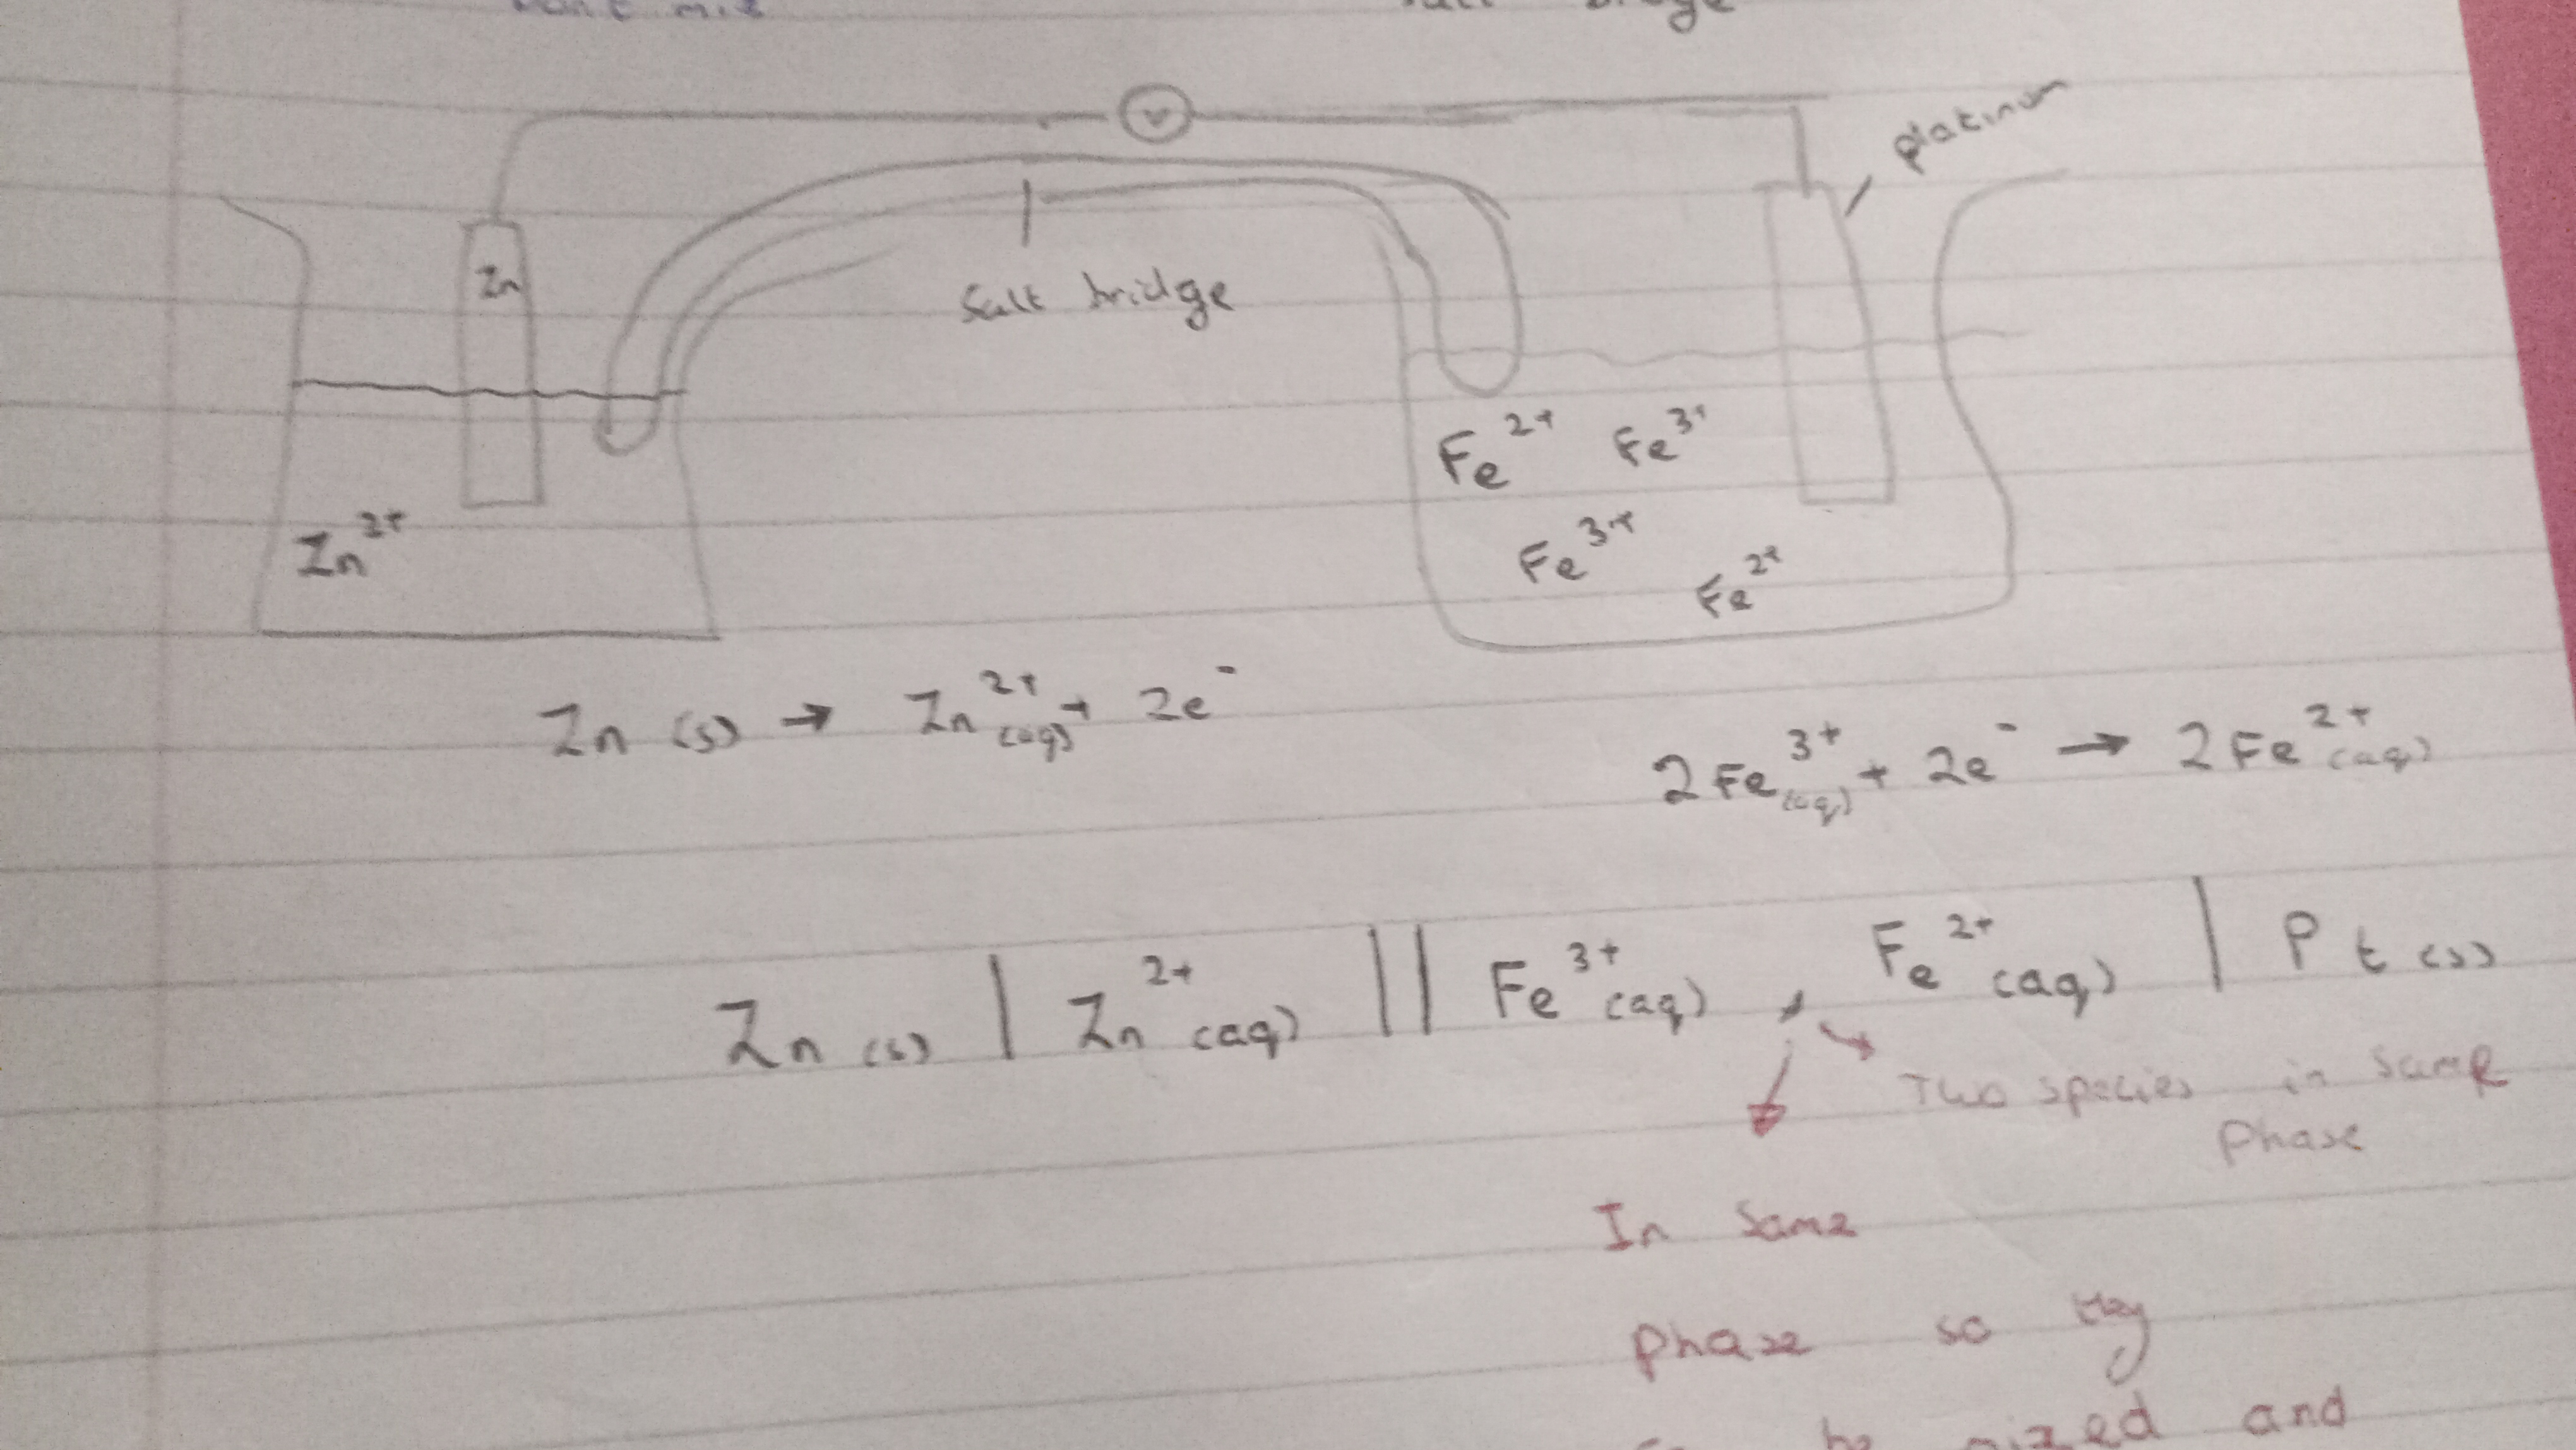 bridge
V
platinum
Zn
Salt bridge
Fe²⁺ Fe³⁺
Zn²⁺
Fe³⁺
Fe²⁺
Zn (s) → Zn²⁺(aq) + 2e⁻
2Fe³⁺(aq) + 2e⁻ → 2Fe²⁺(aq)
Zn (s) | Zn²⁺(aq) || Fe³⁺(aq) , Fe²⁺(aq) | Pt (s)
Two species in same
phase
In same
phase so they
be mixed and